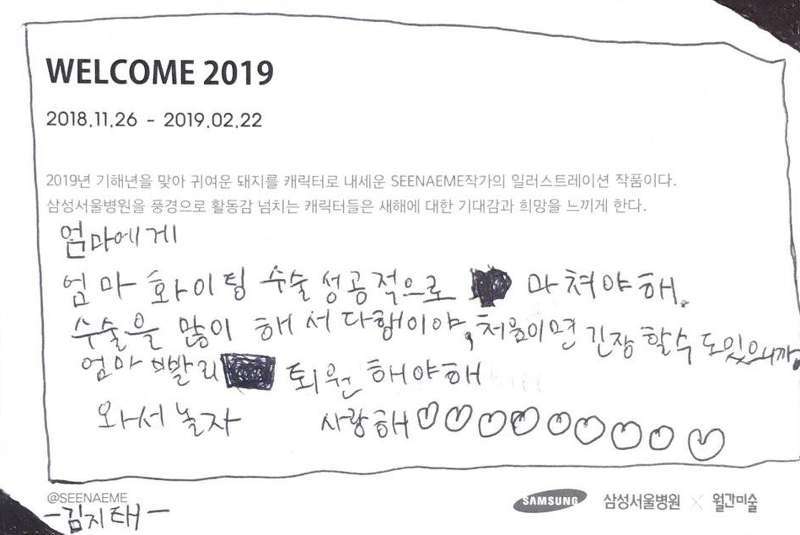 WELCOME 2019
2018.11.26 - 2019.02.22
2019년 기해년을 맞아 귀여운 돼지를 캐릭터로 내세운 SEENAEME작가의 일러스트레이션 작품이다.
삼성서울병원을 풍경으로 활동감 넘치는 캐릭터들은 새해에 대한 기대감과 희망을 느끼게 한다.
엄마에게
엄마 화이팅 수술 성공적으로 마쳐야해.
수술을 많이 해서 다행이야, 처음이면 긴장 할수 도있으니까
엄마 빨리 퇴원해야해
와서놀자 사랑해♡♡♡♡♡♡♡♡♡
@SEENAEME
-김지태-
SAMSUNG 삼성서울병원 × 월간미술